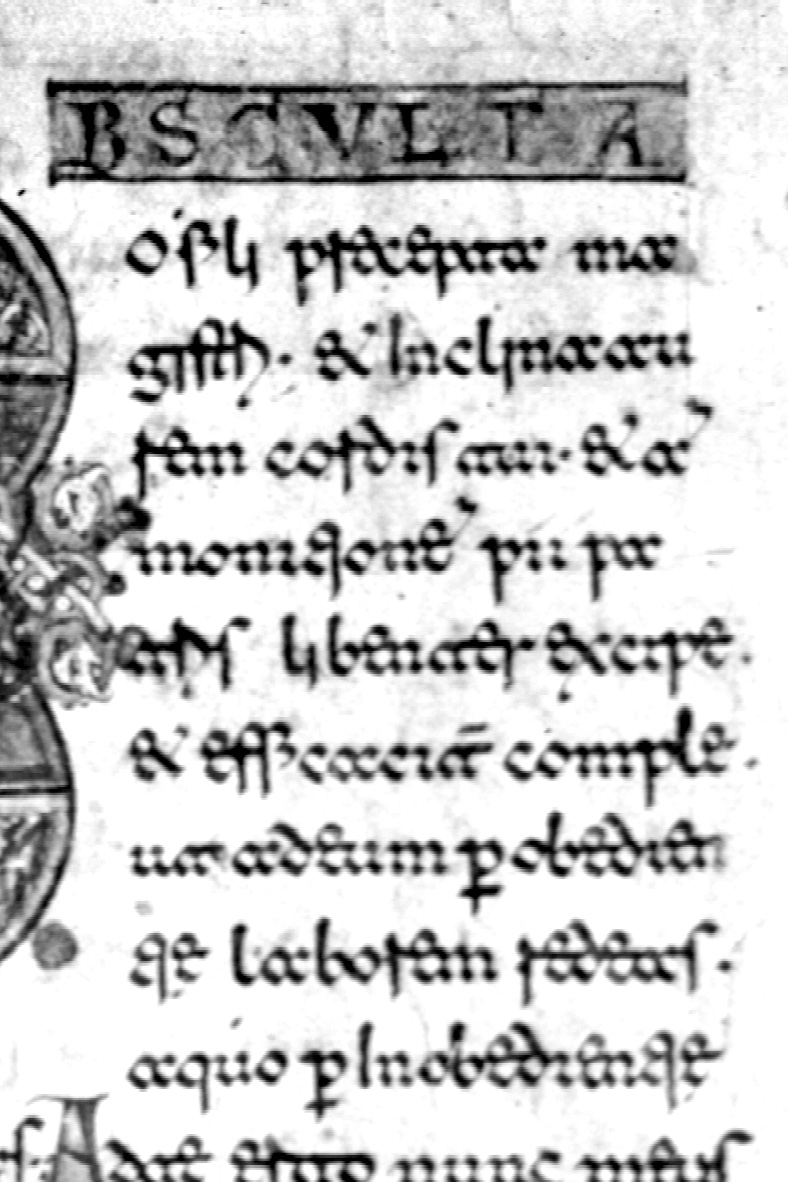 BSCVLTA
O fili precepta ma
gistri · & Inclina au
rem cordis tui · & a
monitione pii pa
tris libenter excipe .
& efficacit̄ comple .
ut adeum ꝑ obedien
tie laborem redeas .
aquo ꝑ Inobedientie
Adte ergo nunc meus